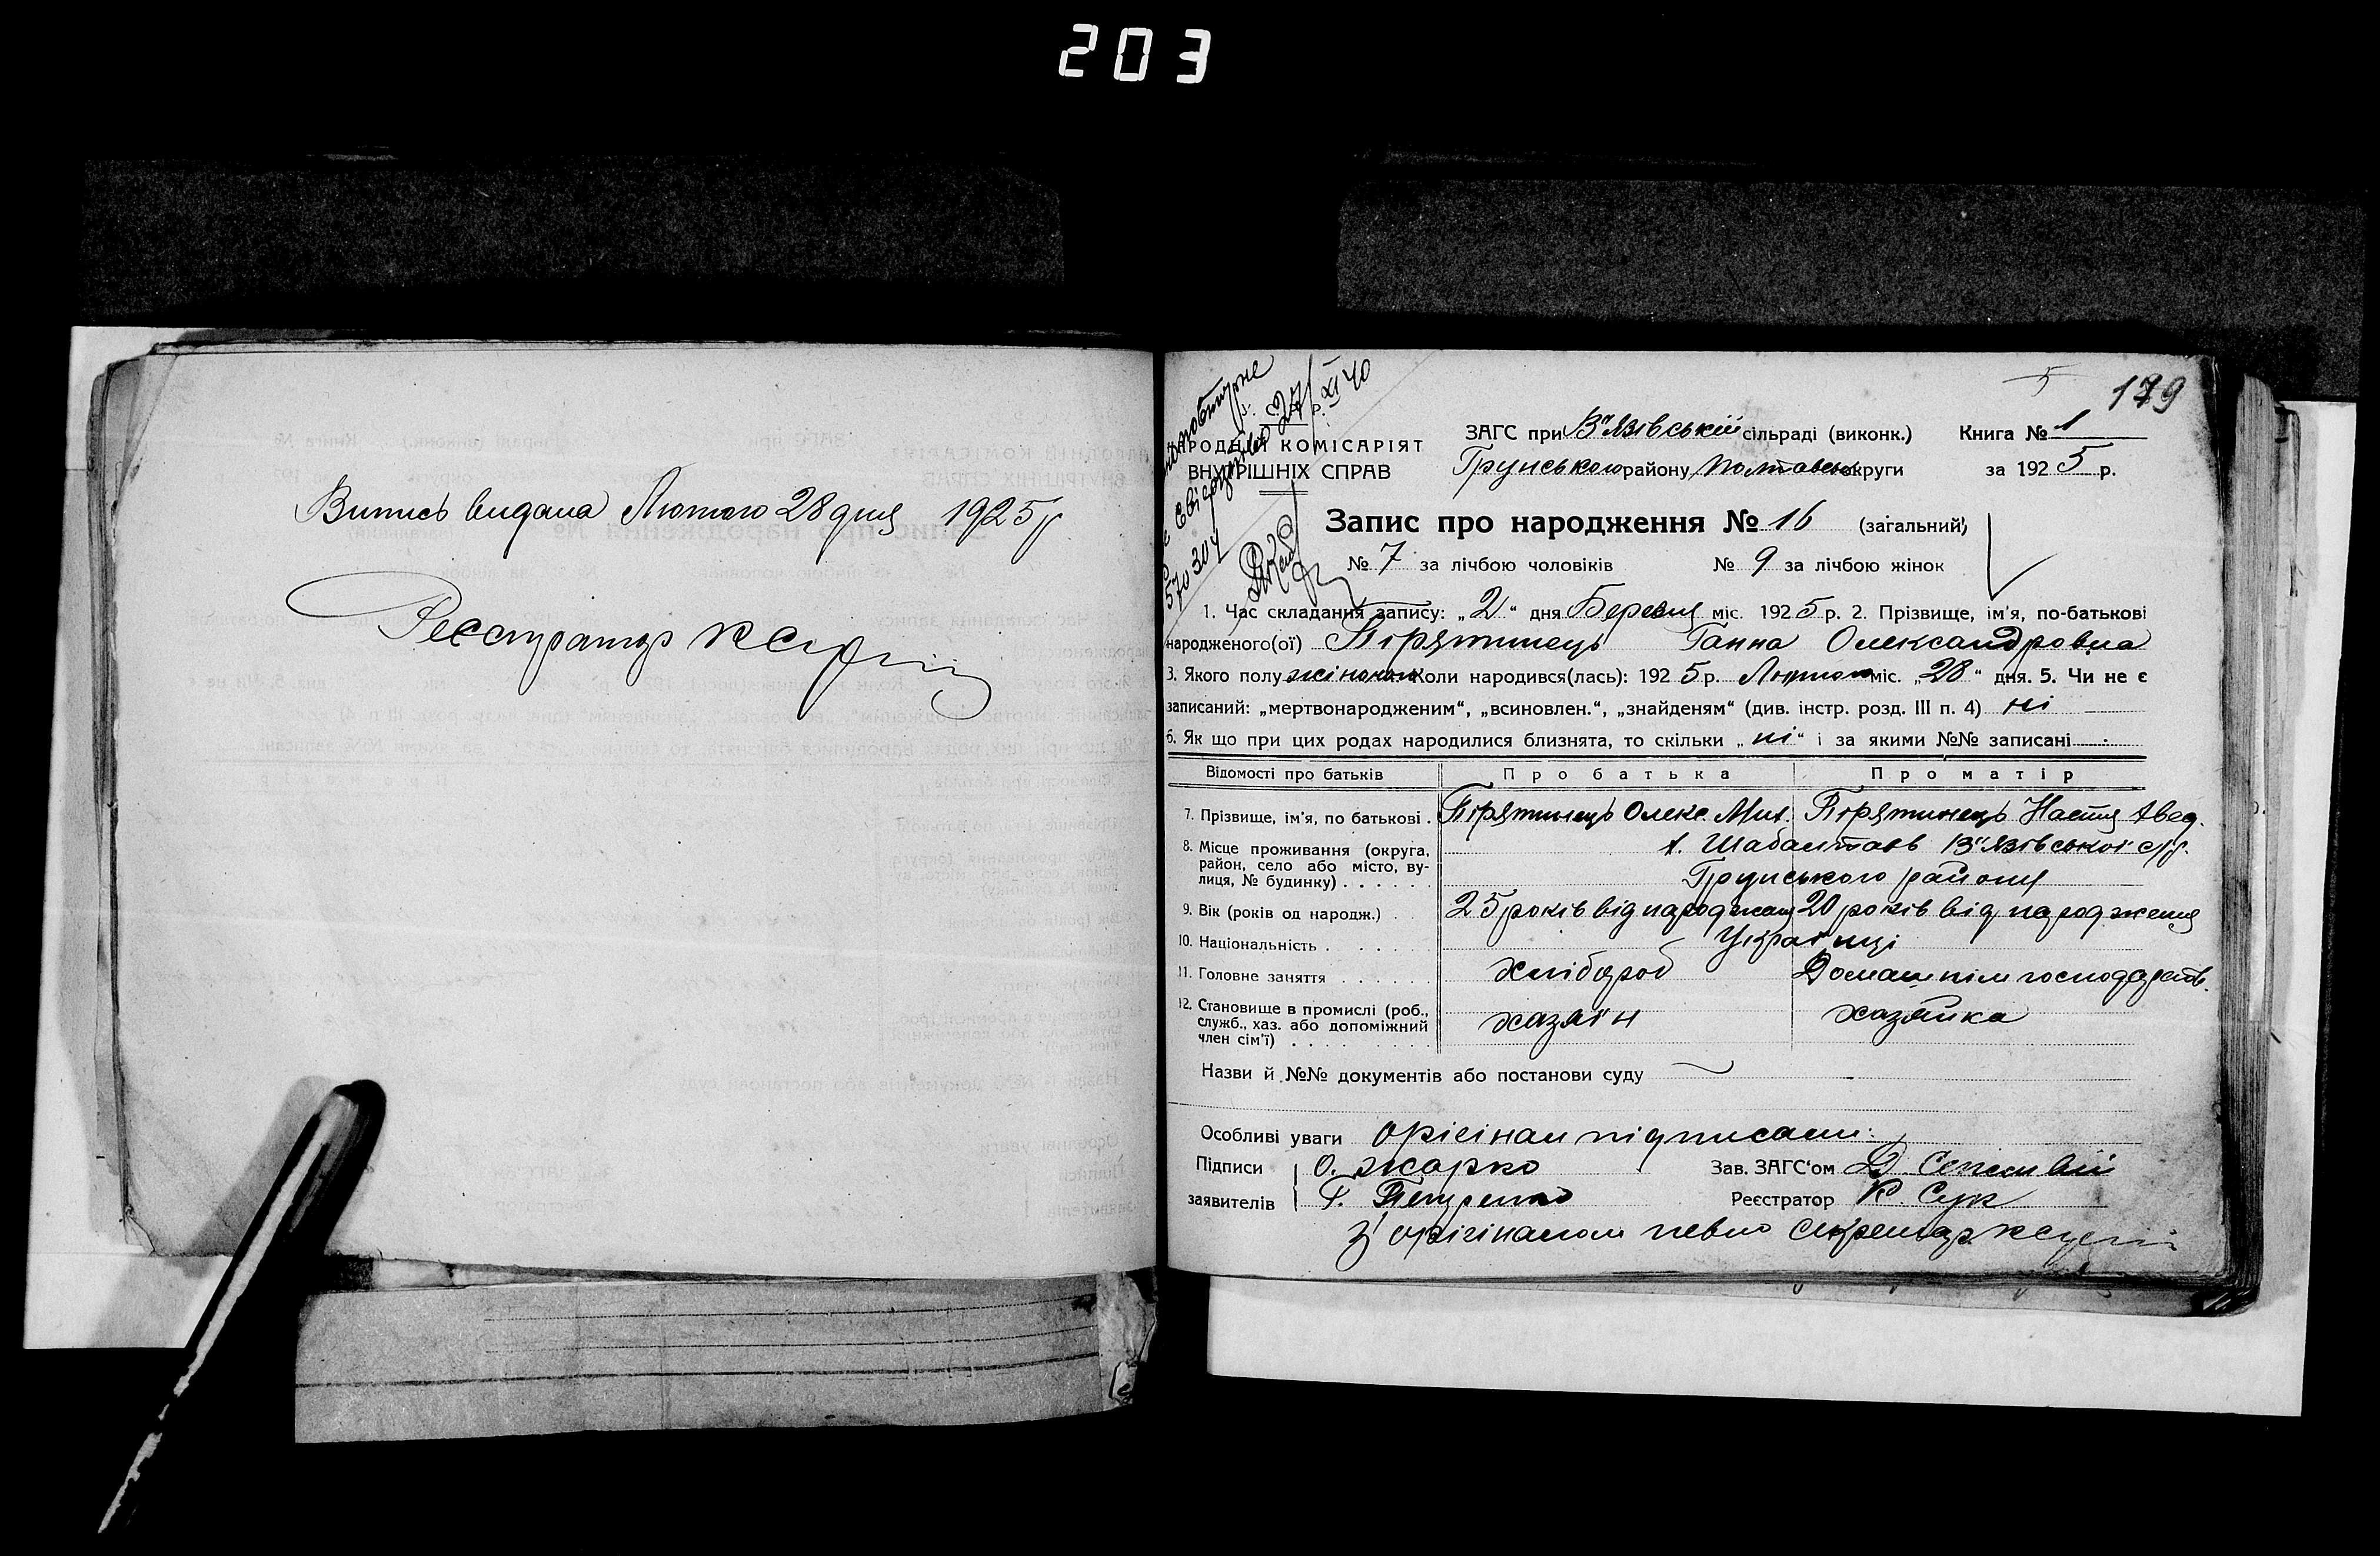 203
Випись видана Лютого 28 дня 1925 р.
Реєстратор
5
179
27/XI 40
570304
НАРОДНІЙ КОМІСАРІЯТ
ВНУТРІШНІХ СПРАВ
ЗАГС при В'язівській сільраді (виконк.) Книга № 1
Грунського району Полтавськ округи за 1925 р.
Запис про народження № 16 (загальний)
№ 7 за лічбою чоловіків № 9 за лічбою жінок
1. Час складання запису: „2“ дня Березня міс. 1925 р. 2. Прізвище, ім'я, по-батькові
народженого(ої) Пірятинець Ганна Олександровна
3. Якого полу жіночого Коли народився(лась): 1925 р. Лютого міс. „28“ дня. 5. Чи не є
записаний: „мертвонародженим“, „всиновлен.“, „знайденям“ (див. інстр. розд. III п. 4) ні
6. Як що при цих родах народилися близнята, то скільки „ні“ і за якими №№ записані -
Відомості про батьків Про батька Про матір
7. Прізвище, ім'я, по батькові . Пірятинець Олекс. Мит. Пірятинець Настя Авед.
8. Місце проживання (округа, район, село або місто, вулиця, № будинку) . . . . . . х. Шабалтаєв В'язівської с/р.
Грунського району
9. Вік (років од народж.) . . 25 років від народження 20 років від народження
10. Національність . . . . . . Українці
11. Головне заняття . . . . . . хлібороб Домашнім господарств.
12. Становище в промислі (роб., служб., хаз. або допоміжний член сім'ї) . . . . . . . . хазяїн хазяйка
Назви й №№ документів або постанови суду
Особливі уваги Орігінал підписали:
Підписи О. Жарко Зав. ЗАГС'ом Д.
заявителів Г. Петренко Реєстратор К. Сук
З орігіналом певно Секретар